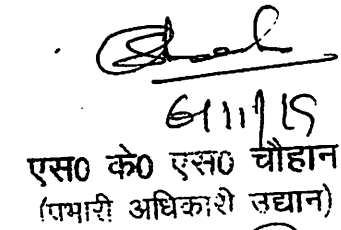 6/11/15
एस0 के0 एस0 चौहान
(प्रभारी अधिकारी उद्यान)